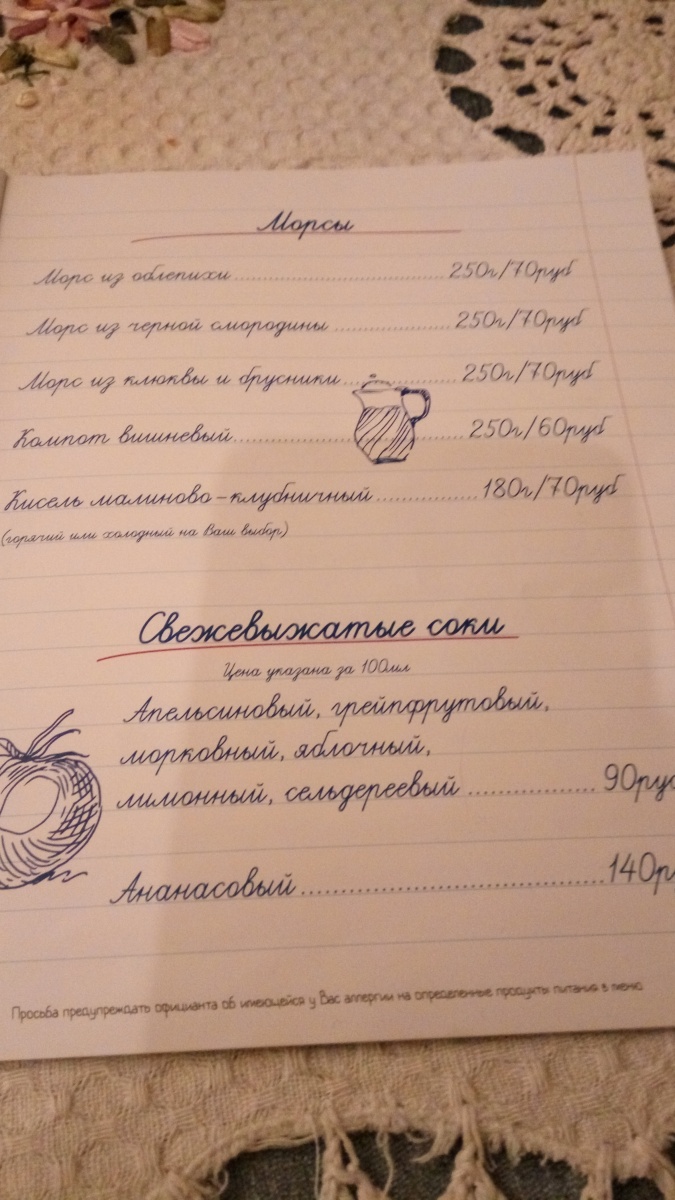 Морсы
Морс из облепихи........................250г/70руб
Морс из черной смородины..............250г/70руб
Морс из клюквы и брусники..............250г/70руб
Компот вишневый........................250г/60руб
Кисель малиново-клубничный............180г/70руб
(горячий или холодный на Ваш выбор)
Свежевыжатые соки
Цена указана за 100мл
Апельсиновый, грейпфрутовый,
морковный, яблочный,
лимонный, сельдереевый..............90руб
Ананасовый..............................140р
Просьба предупреждать официанта об имеющейся у Вас аллергии на определенные продукты питания в меню